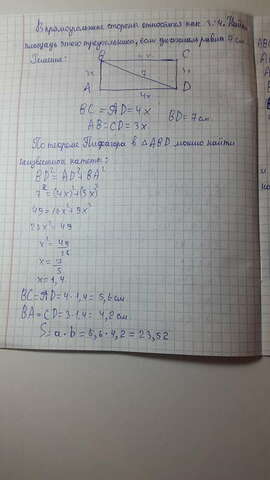 В прямоугольнике стороны относятся как 3:4. Найти
площадь этого прямоугольника, если диагональ равна 7 см.
Решение:
B 4x C
3x 7 3x
A 4x D
BC = AD = 4x
AB = CD = 3x
BD = 7 см
По теореме Пифагора в △ABD можно найти
неизвестный катеты:
BD² = AD² + BA²
7² = (4x)² + (3x)²
49 = 16x² + 9x²
25x² = 49
x² = 49/25
x = 7/5
x = 1,4
BC = AD = 4·1,4 = 5,6 см
BA = CD = 3·1,4 = 4,2 см
S = a·b = 5,6·4,2 = 23,52